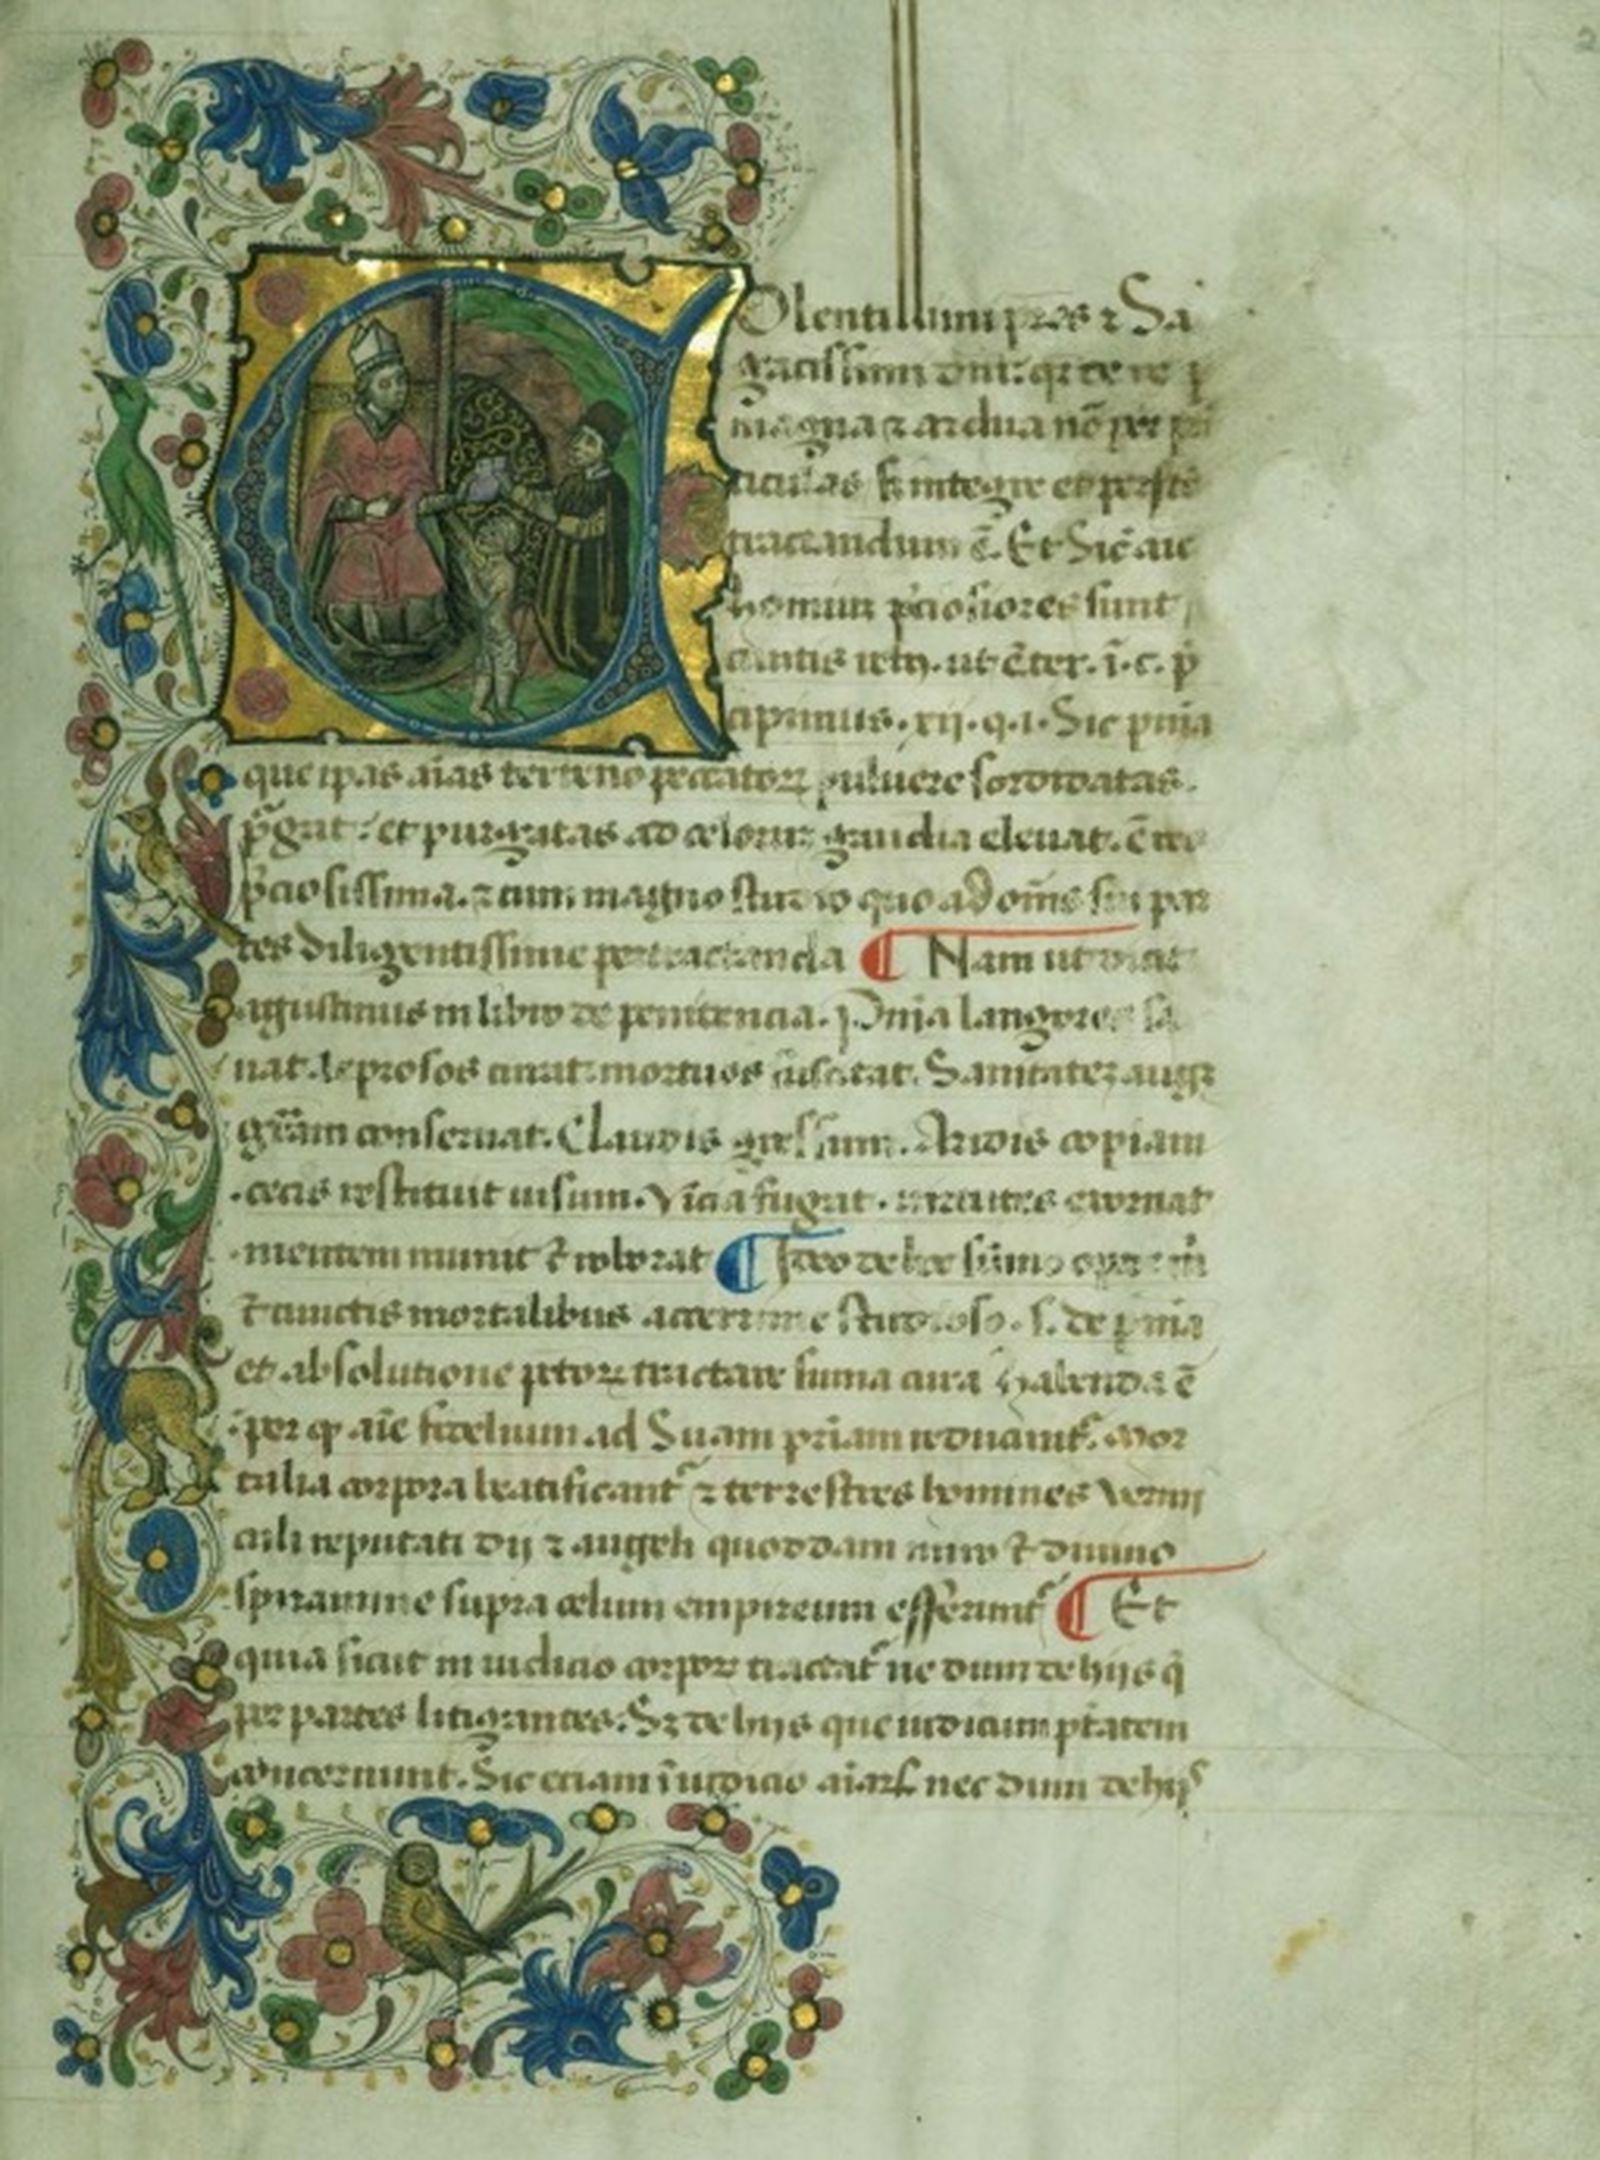 Colentissimi pr̄es ⁊ Sa
gacissimi dn̄i: qr̄ de re
magna ⁊ ardua nō per
ticulas s; integre et perfecte
tractandum ē. Et Sic̄ aīe
hominū p̄ciosiores sunt
cūntis reb3. ut ex̄ter. i. c. p̄
cipimus. xij. q. i. Sic pn̄ia
que ipas aīas terreno peccatorꝝ puluere sordidatas.
p̄gat: et purgatas ad celorum gaudia eleuat. ē res
p̄ciosissima. ⁊ cum magno studio quo ad om̄s sui par
tes diligentissime pertractanda ¶ Nam ut dicit
agustinus in libro de penitencia. Pn̄ia langores sa
nat. leprosos curat. mortuos suscitat. Sanitatez auget
grām conseruat. Claudis gressum. Aridis copiam
.cecis restituit uisum. Vicia fugat. uirtutes exornat
.mentem munit ⁊ roborat ¶ Ideo de hoc sūmo opere
⁊ cunctis mortalibus acerrime studioso. s. de pn̄ia
et absolutione pctorꝝ tractare suma cura habenda ē
.per qᷓ aīe fidelium ad Suam pr̄iam reducunt᷑. Mor
talia corpora beatificant᷑ ⁊ terrestres homines vermi
culi reputati dij ⁊ angeli quoddam miro ⁊ diuino
spiramine supra celum empireum efferunt᷑ ¶ Et
quia sicut in iudicio corporꝝ tractat᷑ ne dum de hijs q̄
per partes litigantes. S; de hijs que iudicium ptātem
concernunt. Sic eciam ī iudicio aīarꝝ nec dum de hijs